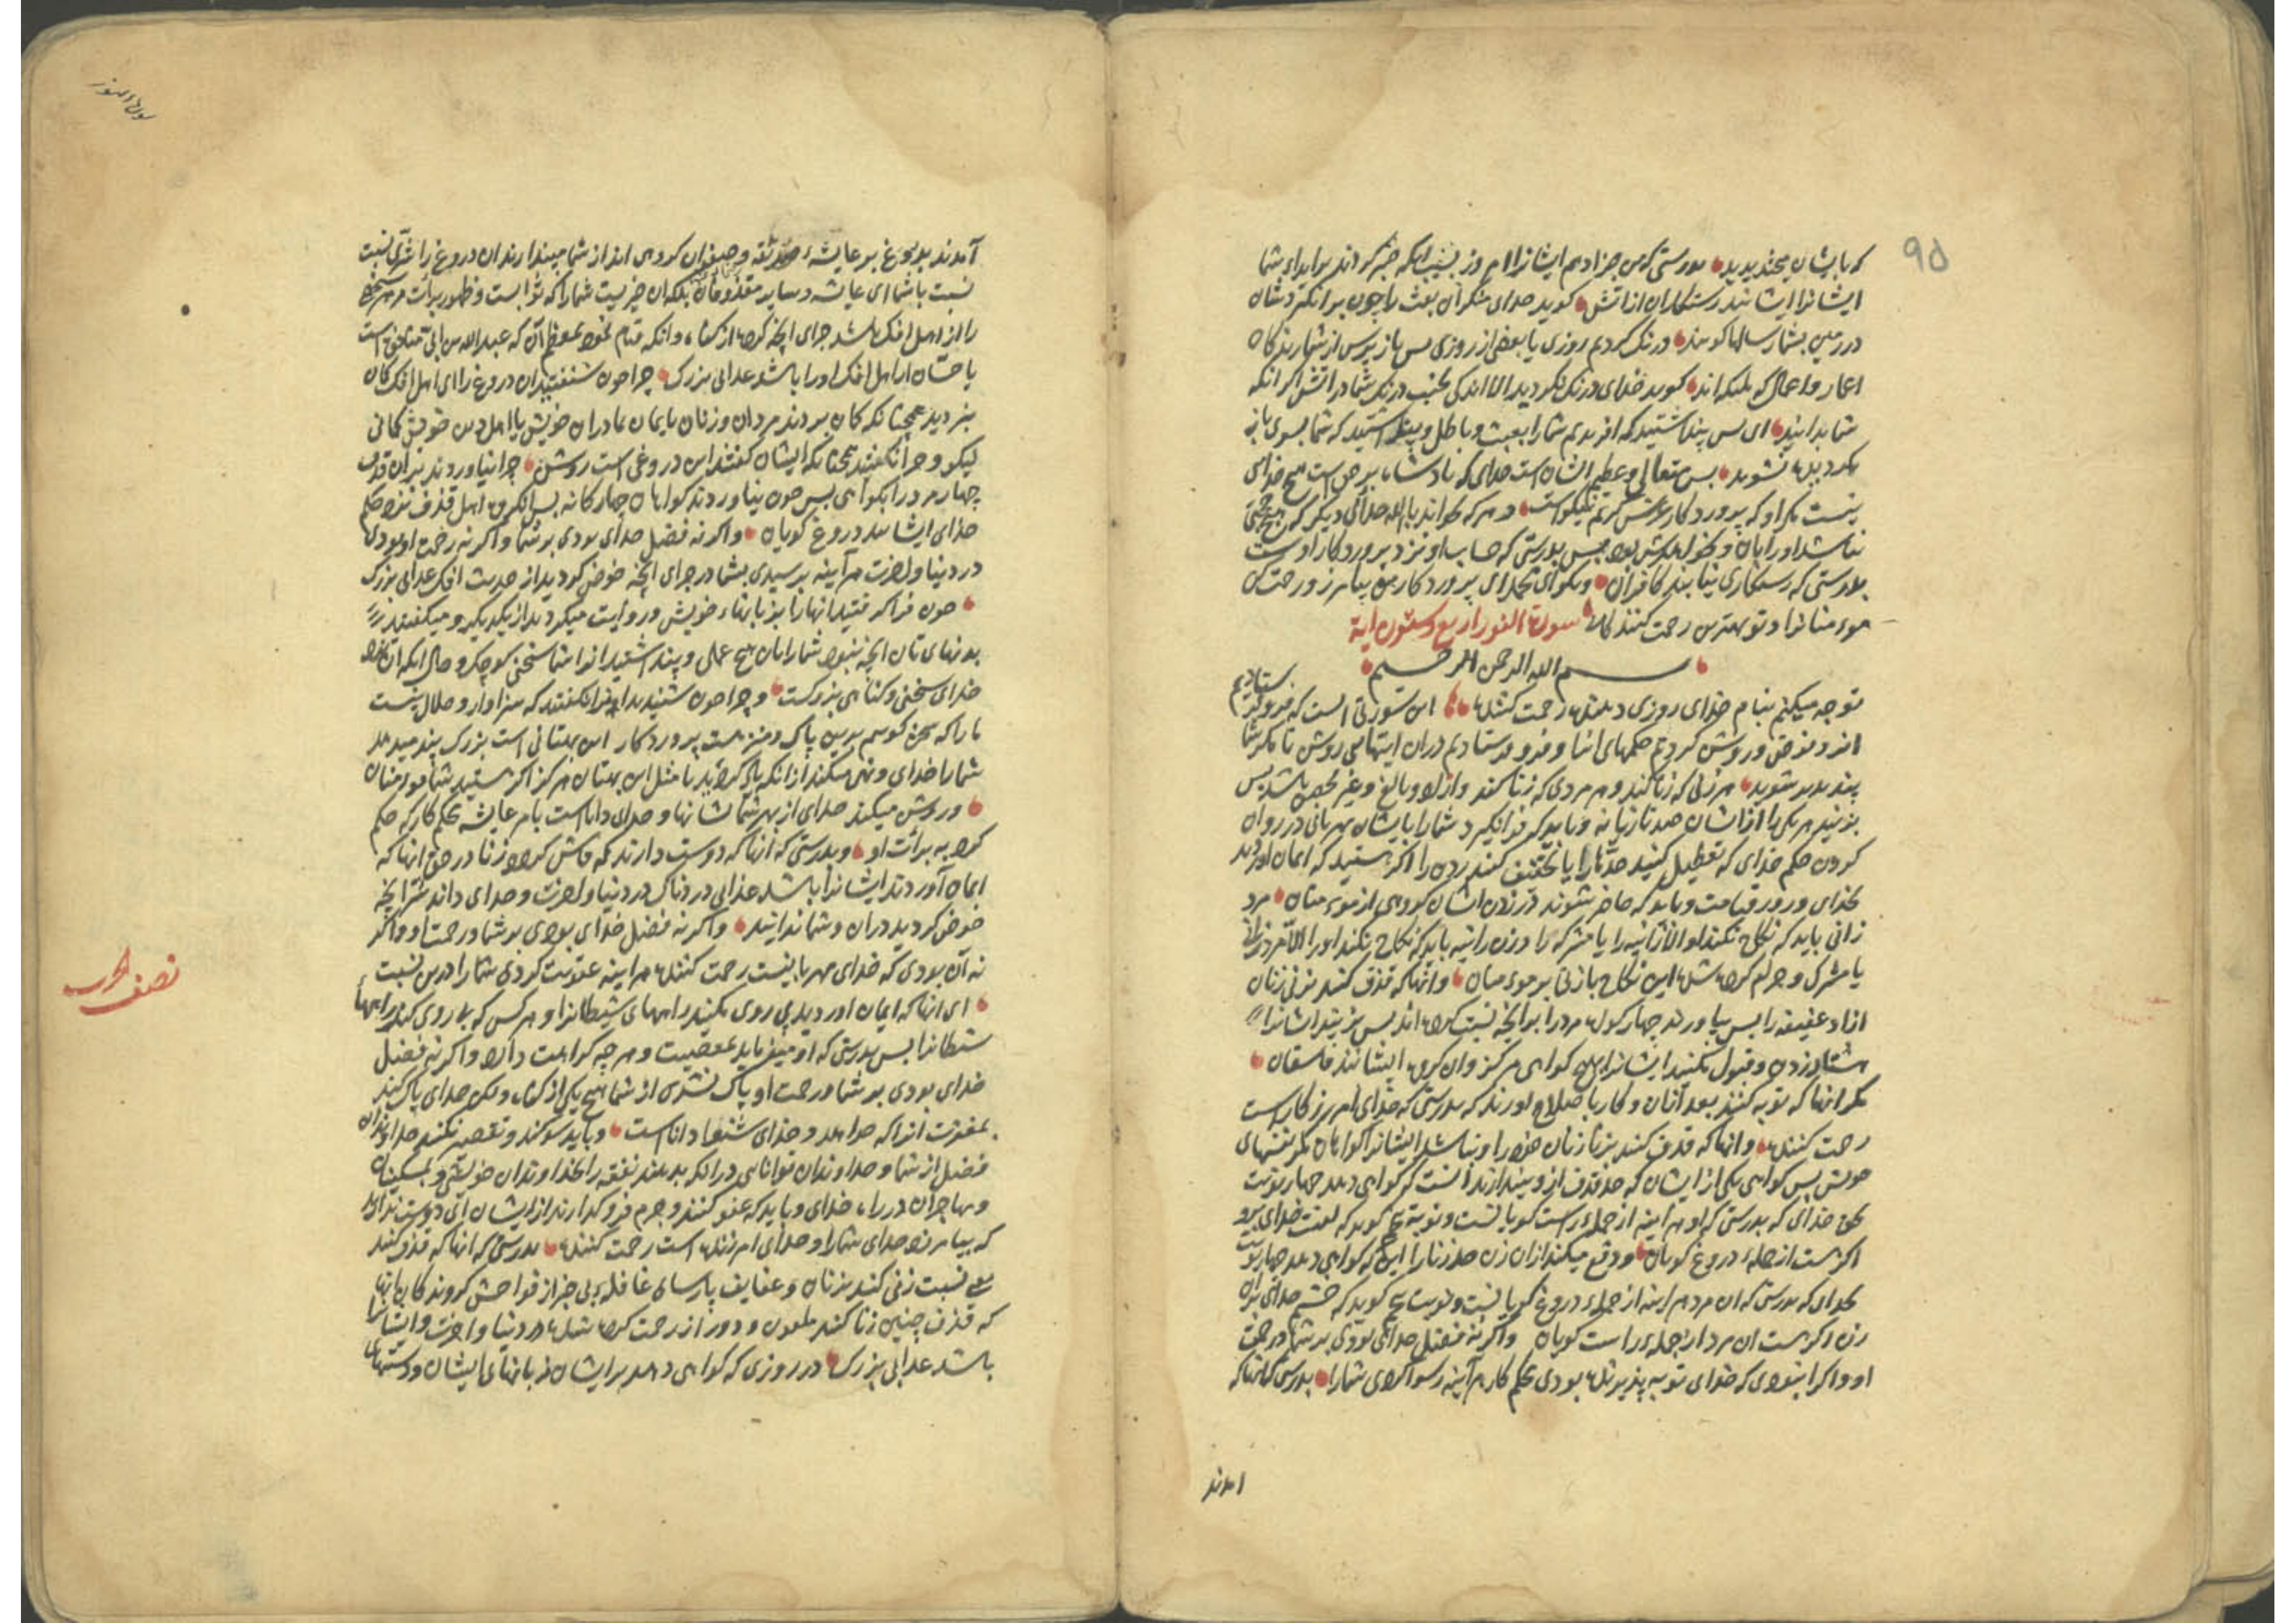 ۹۵
که بایشان میخندیدید بدرستی که من جزا دهم ایشانرا امروز بسبب انکه صبر کردند بر ایذاء شما
ایشانرا ایشانند رستکاران از آتش کوید خدای منکران بعث را چون برانکیزدشان
در زمین بشمار سالها کویند درنک کردیم روزی یا بعضی از روزی پس باز پرس از شمارندکان
اعمار و اعمال که ملئکه‌اند کوید خدای درنک نکردید الا اندکی بجنب درنک شما در اتش اکر انکه
شما بدانید ای پس پنداشتید که افریدیم شما را بعبث و باطل و پنداشتید که شما بسوی ما باز
نکردیده نشوید پس متعالی و عظیم الشان است خدای که بادشاه بر حق است هیچ خدای
نیست مکر او که پروردکار عرش کریم نیکوست و هر که خواند با الله خدای دیکر که هیچ حجتی
نباشد او را بان و بدرستی که حساب او نزد پروردکار اوست
بدرستی که رستکاری نیابند کافران و بکوای محمد ای پروردکار من بیامرز و رحمت کن
مومنانرا و تو بهترین رحمت کنندکان سورة النور اربع و ستون ایة
بسم الله الرحمن الرحیم
توجه میکنم بنام خدای روزی دهنده رحمت کننده این سورتی است که فرو فرستادیم
انرا و فرض و روشن کردیم حکمهای انرا و فرو فرستادیم دران ایتهای روشن تا مکر شما
پند پذیر شوید هر زنی که زنا کند و هر مردی که زنا کند و ازاد و بالغ و غیر محصن باشد پس
بزنید هر یکی را از ایشان صد تازیانه و باید که فرا نکیرد شما را بایشان مهربانی در روان
کردن حکم خدای که تعطیل کنید حدها را یا تخفیف کنید زدن را اکر هستید که ایمان اوردید
بخدای و روز قیامت و باید که حاضر شوند در زدن ایشان کروهی از مومنان مرد
زانی باید که نکاح نکند الا زانیه را یا مشرکه را و زن زانیه باید که نکاح نکند او را الا مرد زانی
یا مشرک و حرام کرده شده این نکاح با زنی بر مومنان و انها که قذف کنند بزنی زنان
ازاد عفیفه را پس بیاورند چهار کواه مرد را بر انچه نسبت کرده‌اند پس بزنید ایشانرا
هشتاد زدن و قبول مکنید ایشانرا هیچ کواهی هرکز و ان کروه ایشانند فاسقان
مکر انها که توبه کنند بعد از آن و کار با صلاح اورند که بدرستی که خدای امرزکار است
رحمت کننده و انها که قذف کنند بزنا زنان خود را و نباشد ایشانرا کواهان مکر نفسهای
خویش پس کواهی یکی از ایشان که حد قذف از او بیندازد انست که کواهی دهد چهار نوبت
بحق خدای که بدرستی که او هر آینه از جمله راست کویانست و نوبت پنجم کوید که لعنت خدای برو
اکر هست از جمله دروغ کویان و دفع میکند از ان زن حد زنا را این که کواهی دهد چهار نوبت
بخدای که بدرستی که ان مرد هر اینه از جمله دروغ کویانست و نوبت پنجم کوید که خشم خدای بران
زن اکر هست ان مرد از جمله راست کویان و اکر نه فضل خدای بودی بر شما و رحمت
او و اکر انبودی که خدای توبه پذیرنده بودی محکم کار هر آینه رسوا کردی شما را بدرستی که انها که
امدند
سورة النور
آمدند بدروغ بر عایشه صدیقه و صفوان کروهی اند از شما مپندارید ان دروغ را شری نسبت
نسبت با شما ای عایشه و سایر مقذوفان بلکه ان خیریست شما را که ثوابست و ظهور برائت هر شخصی
را از اهل افک باشد جزای انچه کرده از کناه و انکه قیام نمود بمعظم آن که عبد الله بن ابی منافق است
یا حسان از اهل افک او را باشد عذابی بزرک چرا چون شنیدید ان دروغ را ای اهل افک کمان
نبردید همچنانکه کمان بردند مردان و زنان با ایمان بمادران خویش یا اهل دین خویش کمانی
نیکو و چرا نکفتند همچنانکه ایشان کفتند این دروغی است روشن چرا نیاوردند بران قذف
چهار مرد را بکواهی پس چون نیاوردند کواهان چهارکانه پس انکروه اهل قذف نزد حکم
خدای ایشانند دروغ کویان و اکر نه فضل خدای بودی بر شما و اکر نه رحمت او بودی
در دنیا و اخرت هر آینه برسیدی بشما در جزای انچه خوض کردید از حدیث افک عذابی بزرک
چون فرا کرفتید انها را بزبانهاء خویش و روایت میکردید از یکدیکر و میکفتید
بدهنهای تان انچه نبود شما را بان هیچ علمی و پنداشتید انرا شما سخنی کوچک و حال انکه ان نزد
خدای سخنی و کناهی بزرکست و چرا چون شنیدید انرا نکفتید که سزاوار و حلال نیست
ما را که سخن کوییم بدین پاک و منزهست پروردکار این بهتانی است بزرک پند میدهد
شما را خدای و نهی میکند از انکه باز کردید با مثل این بهتان هرکز اکر هستید شما مومنان
و روشن میکند خدای از بهر شما نشانها و خدای داناست بامر عایشه محکم کار که حکم
کرد به برائت او و بدرستی که انها که دوست دارند که فاش کردد زنا در حق انها که
ایمان آوردند ایشانرا باشد عذابی دردناک در دنیا و اخرت و خدای داند شر انچه
خوض کردید دران و شما ندانید و اکر نه فضل خدای بودی بر شما و رحمت او و اکر
نه آن بودی که خدای مهربانیست رحمت کننده هر اینه عقوبت کردی شما را درین نسبت
ای انها که ایمان اوردید پی روی مکنید راههای شیطانرا و هر کس که پی روی کند راههای
شیطانرا پس بدرستی که او میفرماید بمعصیت و هر چه کراهت دارد و اکر نه فضل
خدای بودی بر شما و رحمت او پاک نشدی از شما هیچ یکی از کناه و لکن خدای پاک کند
بمغفرت انرا که خواهد و خدای شنوا و داناست و باید سوکند و تقصیر نکنند خداوندان
فضل از شما و خداوندان توانایی در انکه بدهند نفقه را بخداوندان خویشی و بمسکینان
و مهاجران در راه خدای و باید که عفو کنند و جرم فرو کذارند از ایشان ای دوست ندارید
که بیامرزد خدای شما را و خدای امرزنده است رحمت کننده بدرستی که انها که قذف کنند
یعنی نسبت زنی کنند بزنان و عفایف پارسای غافله بی خبر از فواحش کروندکان بانها
که قذف چنین زنا کنند ملعون و دور از رحمت کرده شده در دنیا و اخرت و ایشانرا
باشد عذابی بزرک در روزی که کواهی دهد بر ایشان زبانهای ایشان و دستهای
نصف الحزب